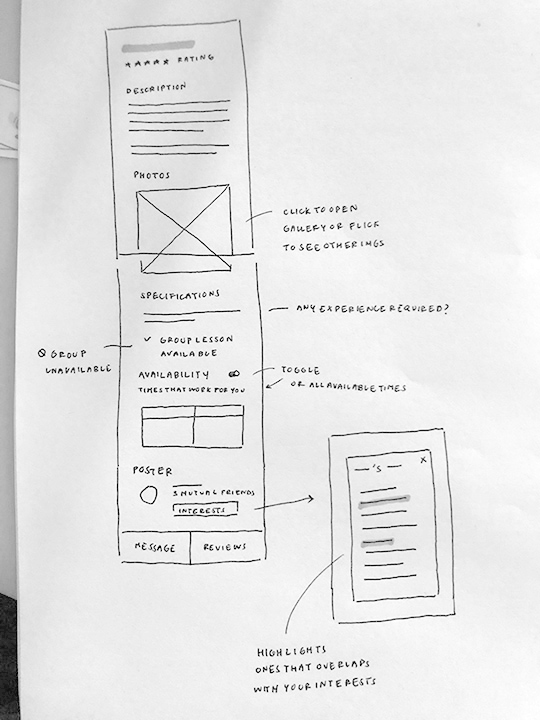 ★★★★★ RATING
DESCRIPTION
PHOTOS
CLICK TO OPEN
GALLERY OR FLICK
TO SEE OTHER INGS
SPECIFICATIONS
ANY EXPERIENCE REQUIRED?
✓ GROUP LESSON
AVAILABLE
⊘ GROUP
UNAVAILABLE
AVAILABILITY
TIMES THAT WORK FOR YOU
TOGGLE
OR ALL AVAILABLE TIMES
POSTER
3 MUTUAL FRIENDS
INTERESTS
MESSAGE
REVIEWS
—'S — X
HIGHLIGHTS
ONES THAT OVERLAPS
WITH YOUR INTERESTS